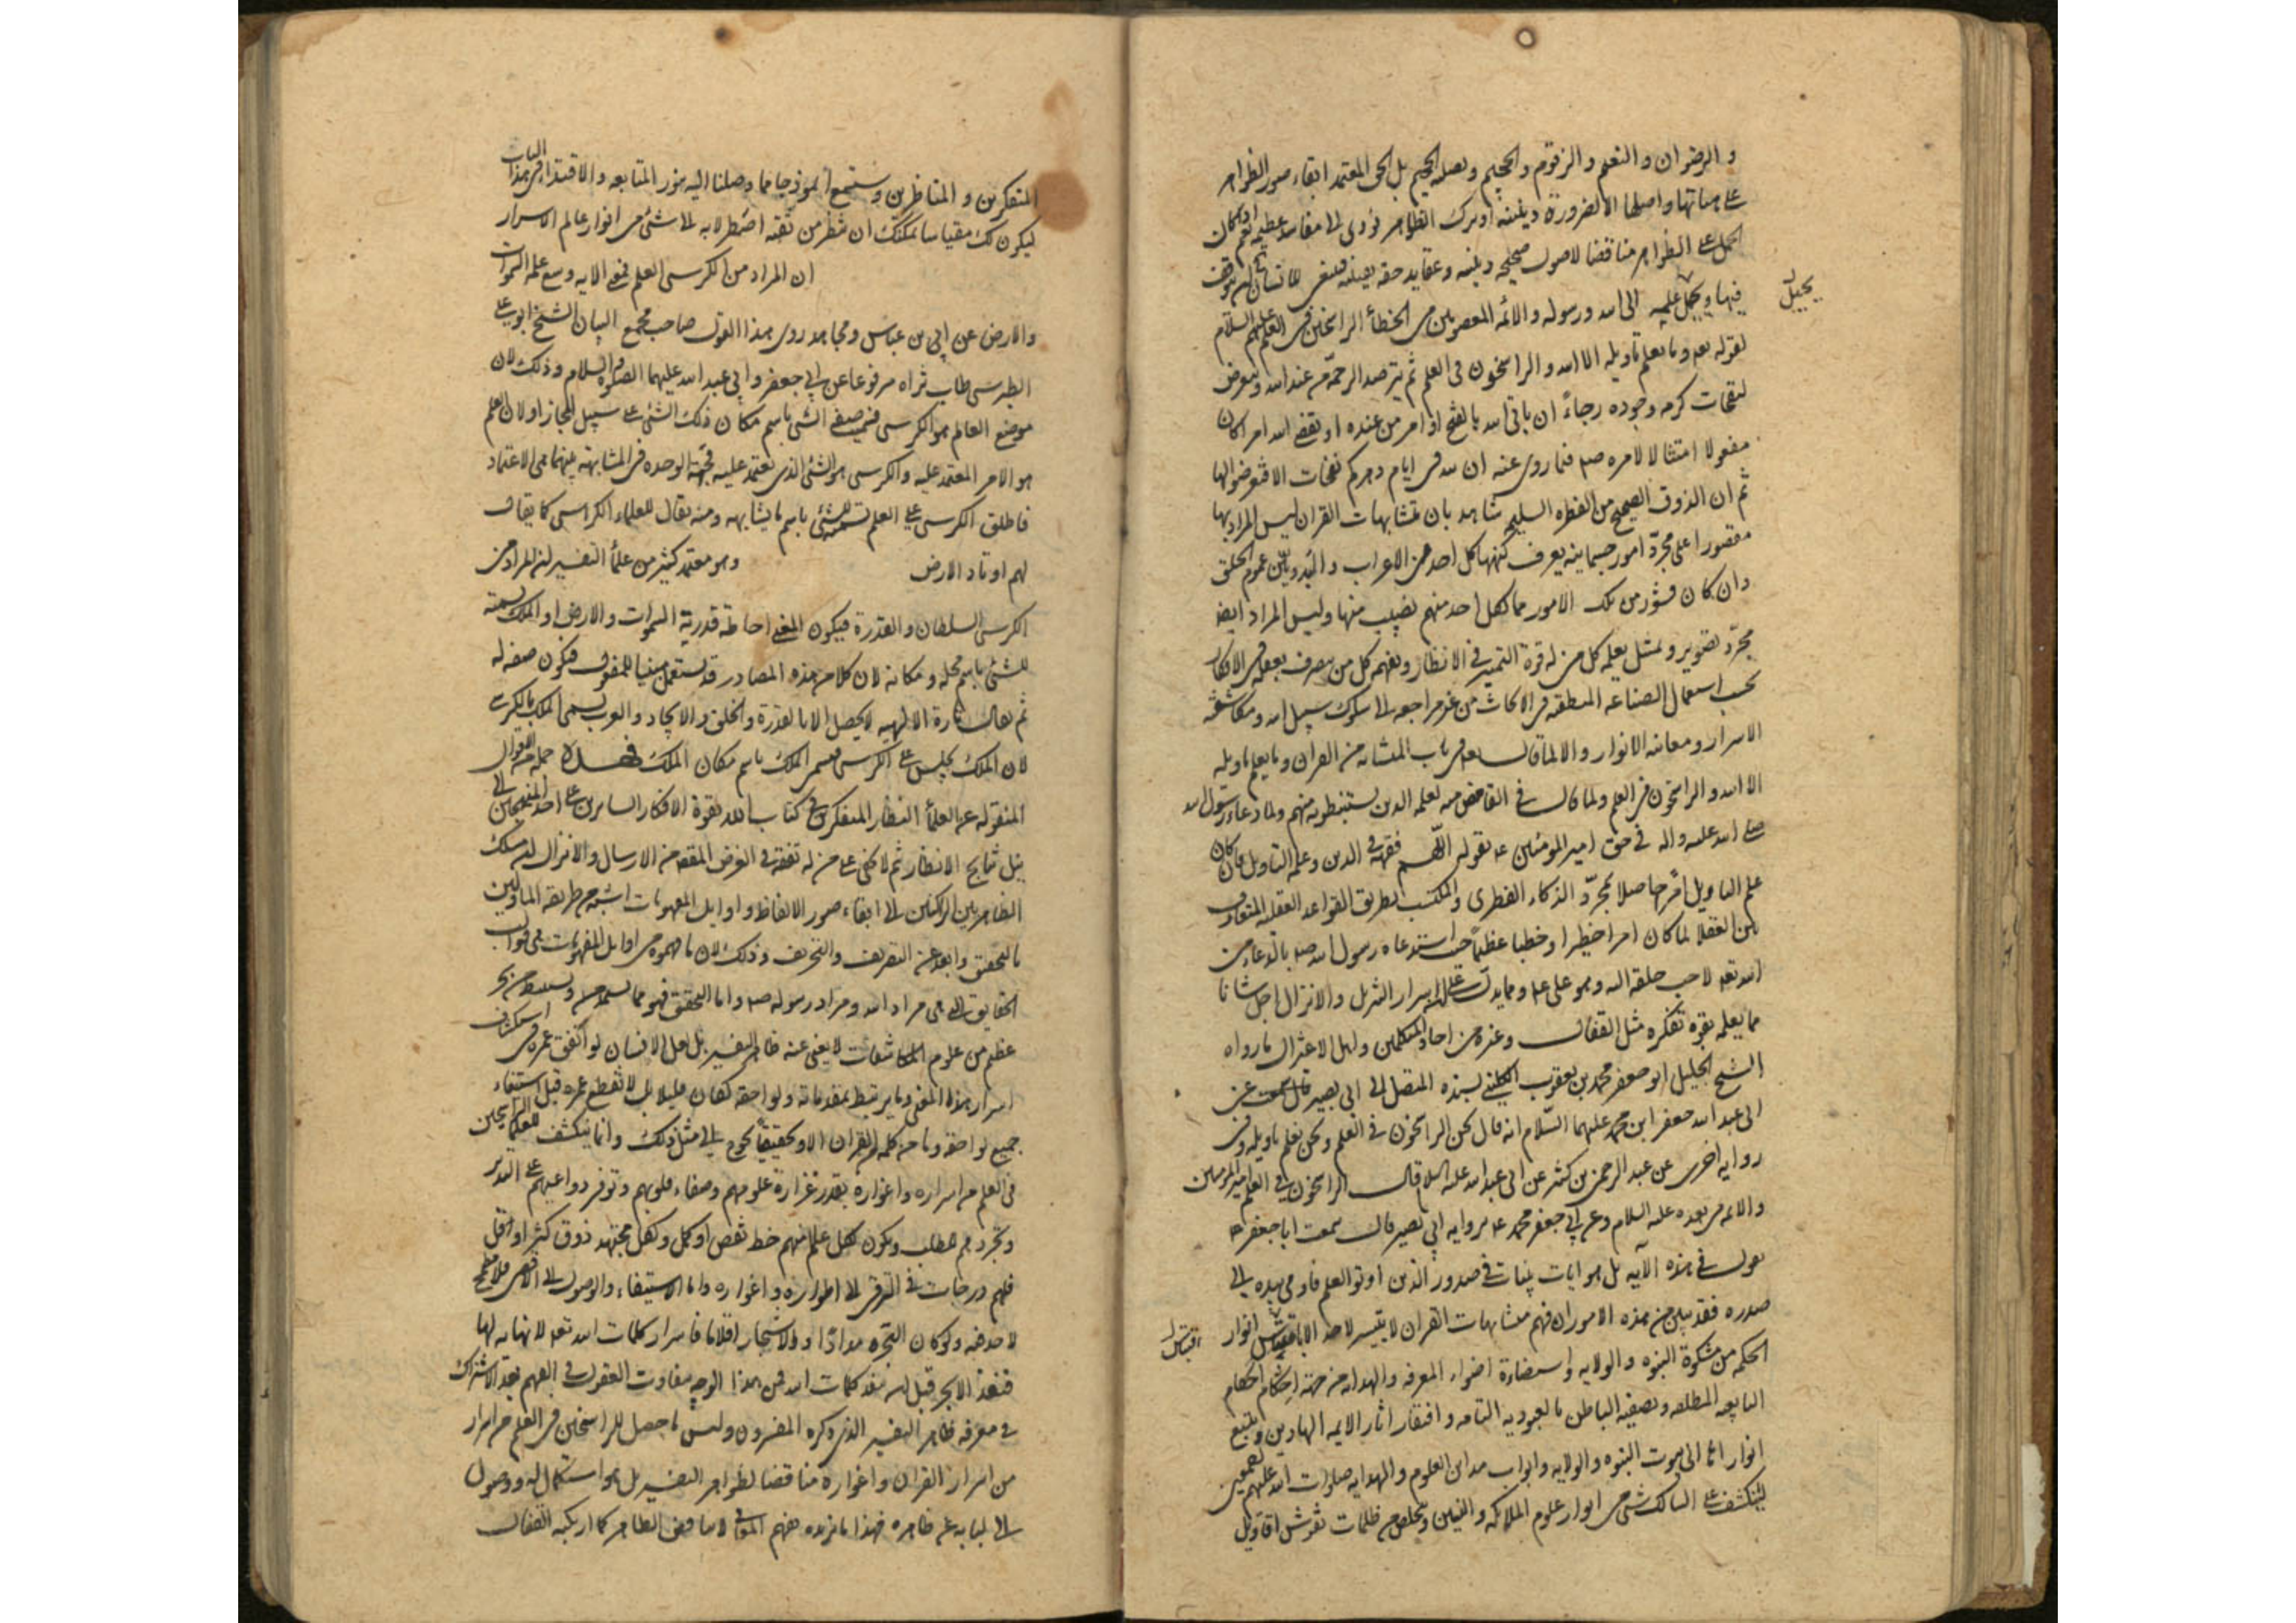 و الرضوان و النعيم و الزقوم و الحجيم و تصلية الجحيم بل الحق المعتمد ابقاء صور الظواهر
على هيأتها واصلها الا لضرورة دينية اذ ترك الظاهر يؤدى الى مفاسد عظيمه نعم اذا كان
الحمل على الظواهر مناقضا لاصول صحيحه دينيه وعقايد حقه يقينيه فينبغى للانسان ان يتوقف
فيها و يحيل علمه الى الله ورسوله والائمه المعصومين من الخطأ الراسخين فى العلم عليهم السلام
يحيل
لقوله تعه وما يعلم تاويله الا الله و الراسخون فى العلم ثم يترصد الرحمة من عند الله ويتعرض
لنفحات كرمه وجوده رجاءً ان ياتى الله بالفتح او امر من عنده او يقضى الله امرا كان
مفعولا امتثالا لامره صه فيما روى عنه ان لله فى ايام دهركم نفحات الا فتعرضوا لها
ثم ان الذوق الصحيح من الفطره السليمه شاهد بان متشابهات القران ليس المراد بها
مقصورا على مجرّد امور جسمانيه يعرف كنهها كل احد من الاعراب و البدويين عموم الخلق
وان كان قشور من تلك الامور مما لكل احد منهم نصيب منها وليس المراد ايضا
مجرّد تصوير وتمثيل يعلمه كل من له قوة التميز فى الانظار ويفهمه كل من يتصرف بعقله فى الافكار
بحسب استعمال الصناعه المنطقيه فى الابحاث من غير مراجعه الى سلوك سبيل الله ومكاشفة
الاسرار ومعاينه الانوار و الا لما قال تعه فى باب المتشابه من القران وما يعلم تاويله
الا الله و الراسخون فى العلم ولما قال فى الغامض منه لعلمه الذين يستنبطونه منهم ولما دعا رسول الله
صلى الله عليه واله فى حق امير المومنين عه بقوله اللهم فقهه فى الدين وعلمه التاويل فان كان
علم التاويل امرًا حاصلا بمجرّد الذكاء الفطرى و المكتسب بطريق القواعد العقليه المتعارف
بين العقلا لما كان امرا خطيرا وخطبا عظيمًا حيث استدعاه رسول الله صه بالدعاء من
الله تعه لاحب خلقه اليه وهو على عه ومما يدل على ان اسرار التنزيل والانزال اجل شانا
مما يعلمه بقوة تفكره مثل القفال وغيره من احاد المتكلمين واهل الاعتزال ما رواه
الشيخ الجليل ابو جعفر محمد بن يعقوب الكلينى بسنده المتصل الى ابى بصير قال سمعت عن
ابى عبد الله جعفر ابن محمد عليهما السّلام انه قال نحن الراسخون فى العلم ونحن نعلم تاويله وفى
روايه اخرى عن عبد الرحمن بن كثير عن ابى عبد الله عليه السلام قال الراسخون فى العلم امير المومنين
والائمه من بعده عليه السلام وعن ابى جعفر محمد عه بروايه ابى بصير قال سمعت ابا جعفر عه
يقول فى هذه الآيه بل هو ايات بينات فى صدور الذين اوتوا العلم فاومى بيده الى
صدره فقد تبين من هذه الامور ان فهم متشابهات القران لا يتيسر لاحد الا باقتباس انوار
اقتباس
الحكمه من مشكوة النبوه والولايه و استضاءة اضواء المعرفه والهدايه من جهة احكام
التابعيه المطلقه وتصفيه الباطن بالعبوديه التامه و اقتفار اثار الايمه الهادين وتتبع
انوار ائمه الى بيوت النبوه والولايه وابواب مداين العلوم والهدايه صلوات الله عليهم اجمعين
لينكشف على السالك شئ من انوار علوم الملائكه والنبيين ويتخلص من ظلمات نقوش اقاويل
المتفكرين و المتناظرين و ستسمع انموذجا مما وصلنا اليه بنور المتابعه والاقتداء فى هذا الباب
ليكون لك مقياسا يمكنك ان تنظر من ثقبة اصطرلابه الى شئ من انوار عالم الاسرار
ان المراد من الكرسى العلم فمعنى الايه وسع علمه السموات
والارض عن ابن عباس ومجاهد روى هذا القول صاحب مجمع البيان الشيخ ابو على
الطبرسى طاب ثراه مرفوعا عن ابى جعفر وابى عبد الله عليهما الصلوه والسلام وذلك لان
موضع العالم هو الكرسى فسميت صفة الشئ باسم مكان ذلك الشئ على سبيل المجاز او لان العلم
هو الامر المعتمد عليه والكرسى هو الشئ الذى يعتمد عليه فجهة الوحده فى المشابهة بينهما هى الاعتماد
فاطلق الكرسى على العلم تسمية للشئ باسم ما يشابهه ومنه يقال للعلماء الكراسى كما يقال
لهم اوتاد الارض وهو معتمد كثير من علمأ التفسير ان المراد من
الكرسى السلطان و القدرة فيكون المعنى احاطة قدرته السموات والارض او الملك تسمية
للشئ باسم محله ومكانه لان كلا من هذه المصادر قد يستعمل مبنيا للمفعول فيكون صفه له
ثم يقال تارة الالهيه لا يحصل الا بالقدرة والخلق والايجاد والعرب يسمى الملك بالكرسى
لان الملك يجلس على الكرسى فسمى الملك باسم مكان الملك فهذه جملة من الاقوال
المنقوله عن العلمأ النظار المتفكرين فى كتاب الله بقوة الافكار السايرين على احد المنهجين فى
نيل نتايج الانظار ثم لا يخفى على من له تفقه فى الغرض المقصود من الارسال والانزال ان مسلك
الظاهريين الراكنين الى ابقاء صور الالفاظ و اوايل المفهومات اشبه من طريقه الماولين
بالتحقيق وابعد عن التصريف والتحريف وذلك لان ما فهموه من اوايل المفهومات هى قوالب
الحقايق التى هى مراد الله ومراد رسوله صه واما التحقيق فهو مما يستمد من بحر
عظيم من علوم المكاشفات لا يغنى عنه ظاهر التفسير بل لعل الانسان لو انفق عمره فى استكشاف
اسرار هذا المعنى وما يرتبط بمقدماته ولواحقه لكان قليلا بل لانقطع عمره قبل استيفاء
جميع لواحقه وما من كلمة من القران الا وتحقيقها يحوج الى مثل ذلك وانما ينكشف للعلماء الراسخين
فى العلم من اسراره واغواره بقدر غزارة علومهم وصفاء قلوبهم وتوفر دواعيهم على التدبر
وتجردهم للطلب ويكون لكل عالم منهم حظ نقص او كمل ولكل مجتهد ذوق كثر او اقل
فلهم درجات فى الترقى الى اطواره و اغواره واما الاستيفاء والوصول الى الاقصى فلا مطمع
لاحد فيه ولو كان البحر مدادًا والاشجار اقلاما فاسرار كلمات الله تعه لا نهايه لها
فتنفذ الابحر قبل ان تنفد كلمات الله فمن هذا الوجه تفاوت العقول فى الفهم بعد الاشتراك
فى معرفه ظاهر التفسير الذى ذكره المفسرون وليس ما حصل للراسخين فى العلم من اسرار
من اسرار القران و اغواره مناقضا لظواهر التفسير بل هو استكمال له ووصول
الى لبابه عن ظاهره فهذا ما نريده بفهم المعانى لا ما يناقض الظاهر كما ارتكبه القفال